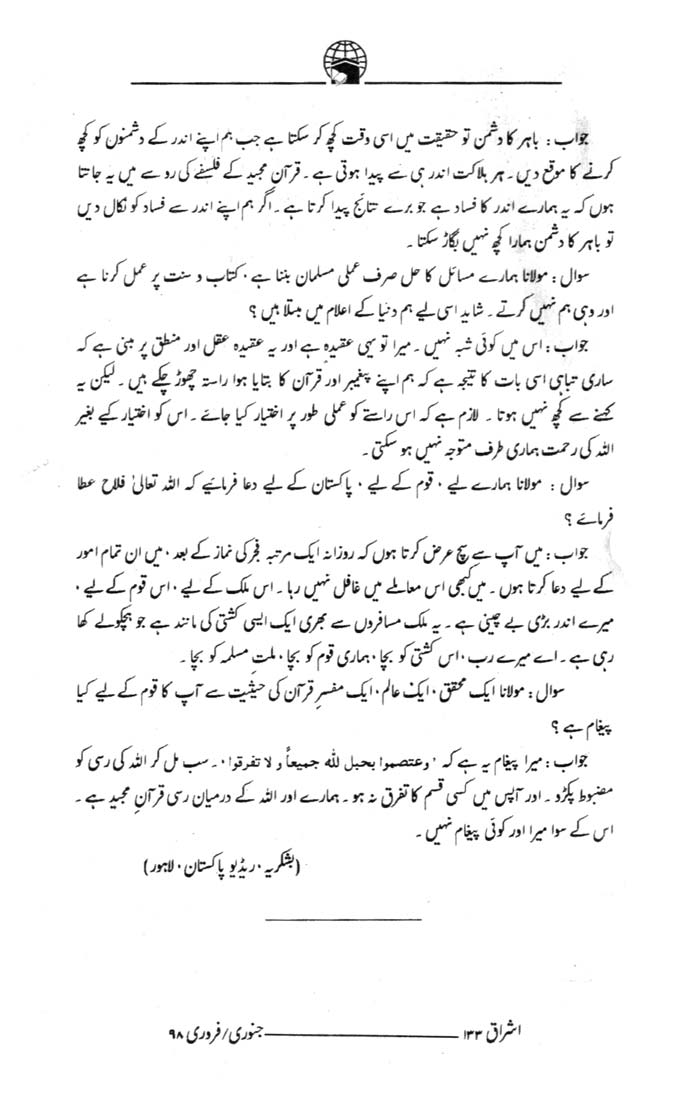 جواب : باہر کا دشمن تو حقیقت میں اسی وقت کچھ کر سکتا ہے جب ہم اپنے اندر کے دشمنوں کو کچھ
کرنے کا موقع دیں ۔ ہر ہلاکت اندر ہی سے پیدا ہوتی ہے ۔ قرآن مجید کے فلسفے کی رو سے میں یہ جانتا
ہوں کہ یہ ہمارے اندر کا فساد ہے جو برے نتائج پیدا کرتا ہے ۔ اگر ہم اپنے اندر سے فساد کو نکال دیں
تو باہر کا دشمن ہمارا کچھ نہیں بگاڑ سکتا ۔
سوال : مولانا ہمارے مسائل کا حل صرف عملی مسلمان بننا ہے ، کتاب و سنت پر عمل کرنا ہے
اور وہی ہم نہیں کرتے ۔ شاید اسی لیے ہم دنیا کے اعلام میں مبتلا ہیں ؟
جواب : اس میں کوئی شبہ نہیں ۔ میرا تو یہی عقیدہ ہے اور یہ عقیدہ عقل اور منطق پر مبنی ہے کہ
ساری تباہی اسی بات کا نتیجہ ہے کہ ہم اپنے پیغمبر اور قرآن کا بتایا ہوا راستہ چھوڑ چکے ہیں ۔ لیکن یہ
کہنے سے کچھ نہیں ہوتا ۔ لازم ہے کہ اس راستے کو عملی طور پر اختیار کیا جائے ۔ اس کو اختیار کیے بغیر
اللہ کی رحمت ہماری طرف متوجہ نہیں ہو سکتی ۔
سوال : مولانا ہمارے لیے ، قوم کے لیے ، پاکستان کے لیے دعا فرمائیے کہ اللہ تعالیٰ فلاح عطا
فرمائے ؟
جواب : میں آپ سے سچ عرض کرتا ہوں کہ روزانہ ایک مرتبہ فجر کی نماز کے بعد ، میں ان تمام امور
کے لیے دعا کرتا ہوں ۔ میں کبھی اس معاملے میں غافل نہیں رہا ۔ اس ملک کے لیے ، اس قوم کے لیے ،
میرے اندر بڑی بے چینی ہے ۔ یہ ملک مسافروں سے بھری ایک ایسی کشتی کی مانند ہے جو ہچکولے کھا
رہی ہے ۔ اے میرے رب ، اس کشتی کو بچا ، ہماری قوم کو بچا ، ملتِ مسلمہ کو بچا ۔
سوال : مولانا ایک محقق ، ایک عالم ، ایک مفسرِ قرآن کی حیثیت سے آپ کا قوم کے لیے کیا
پیغام ہے ؟
جواب : میرا پیغام یہ ہے کہ ' وعتصموا بحبل لله جميعاً و لا تفرقوا ' ۔ سب مل کر اللہ کی رسی کو
مضبوط پکڑو ۔ اور آپس میں کسی قسم کا تفرق نہ ہو ۔ ہمارے اور اللہ کے درمیان رسی قرآنِ مجید ہے ۔
اس کے سوا میرا اور کوئی پیغام نہیں ۔
(بشکریہ ، ریڈیو پاکستان ، لاہور)
اشراق ۱۳۳ ــــــــــــ جنوری/فروری ۹۸